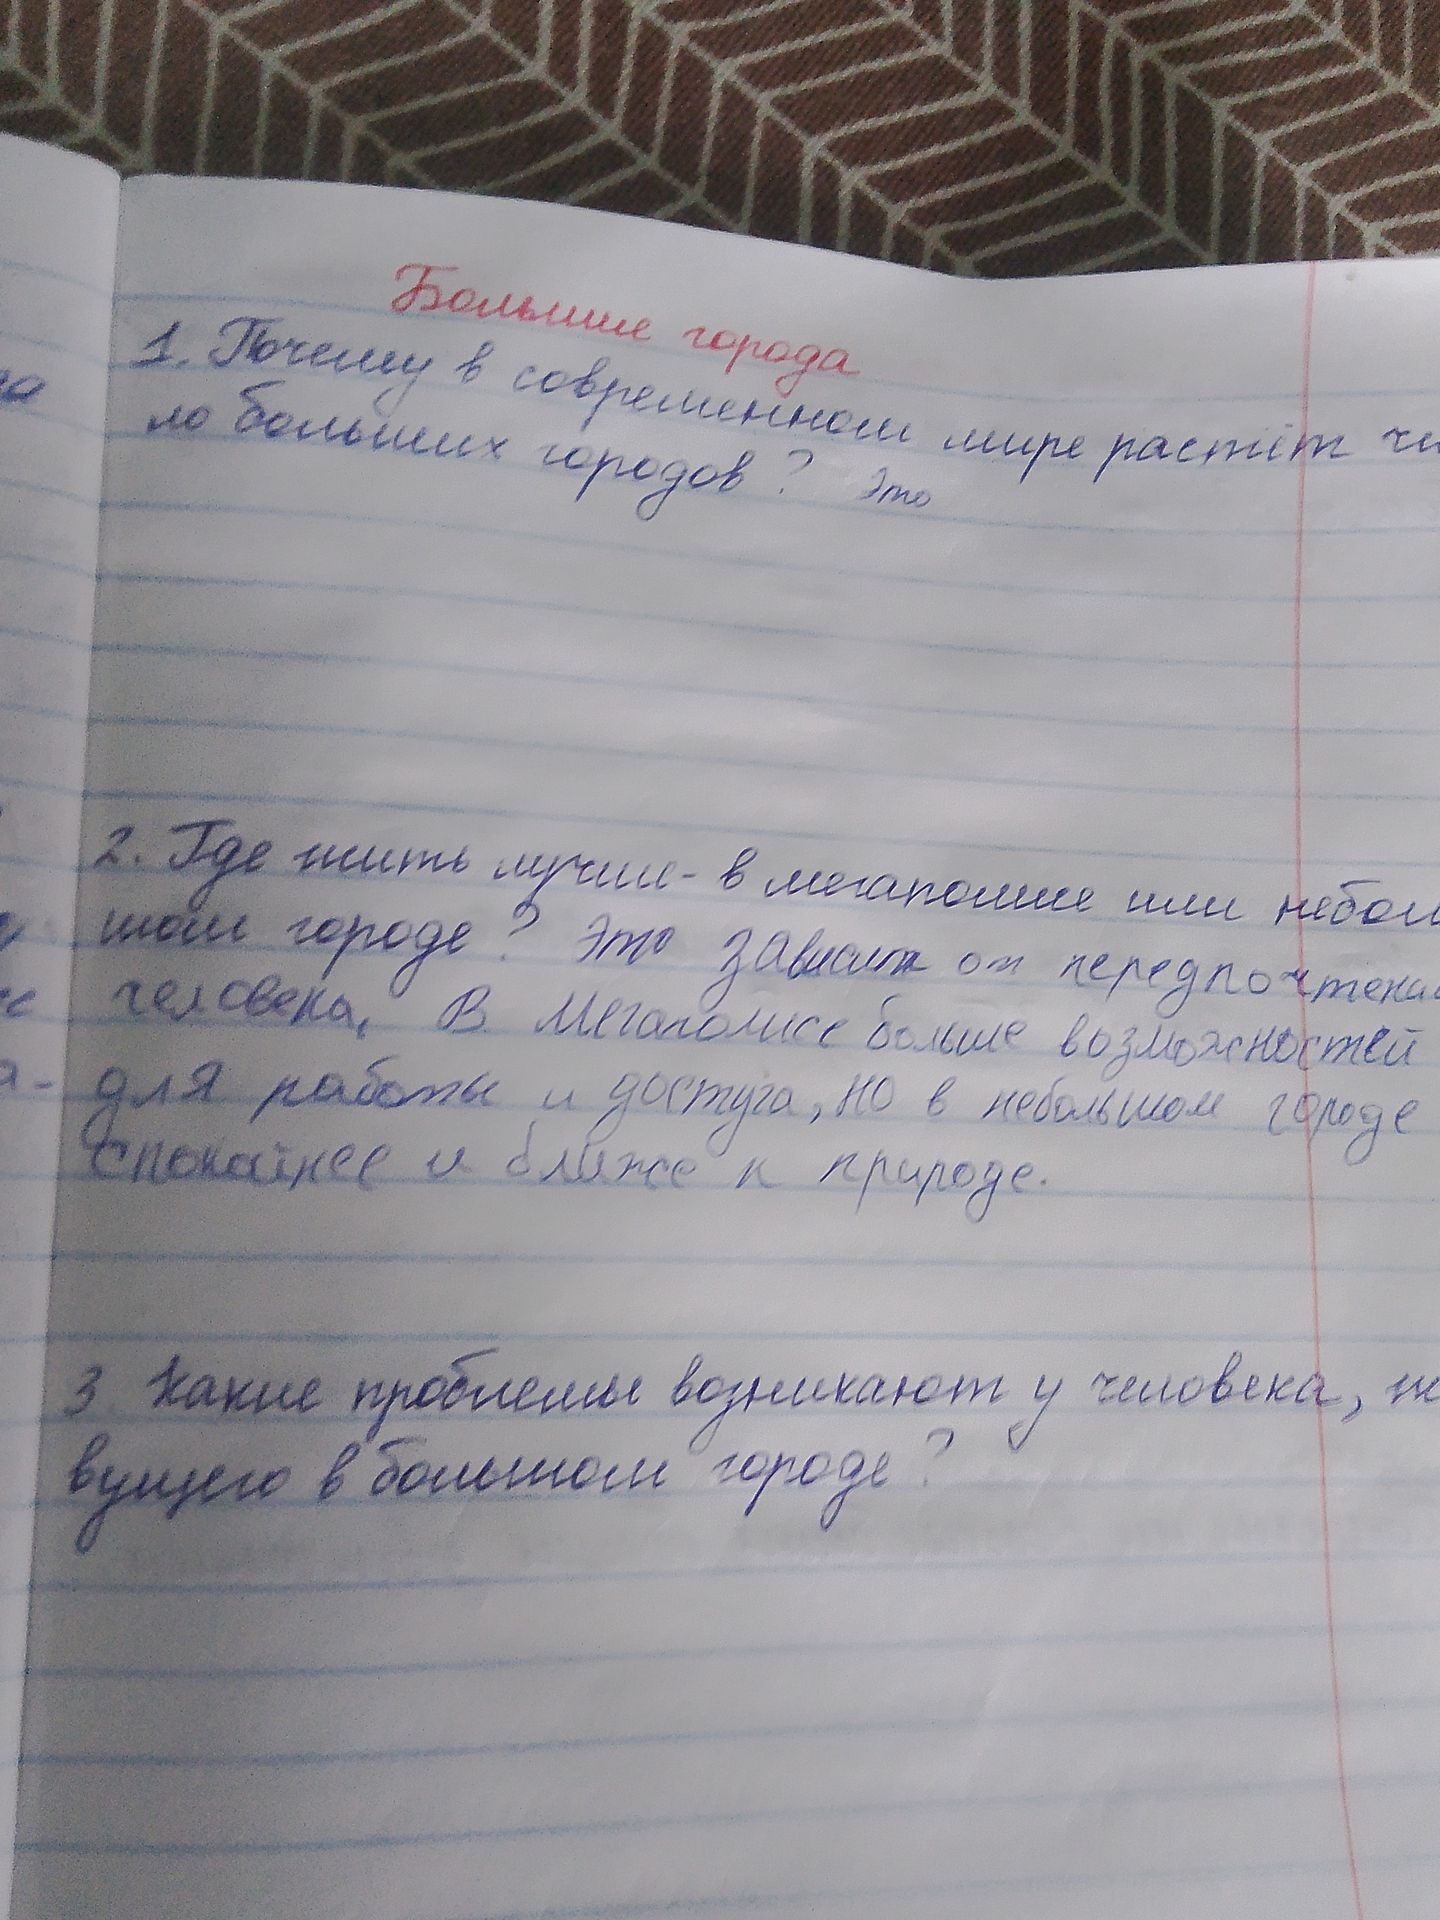 Большие города
1. Почему в современном мире растёт чи
ло больших городов? Это
2. Где жить лучше - в мегаполисе или небол
шом городе? Это зависит от передпочтени
человека. В Мегаполисе больше возможностей
для работы и досуга, но в небольшом городе
спокойнее и ближе к природе.
3. Какие проблемы возникают у человека, ж
вущего в большом городе?